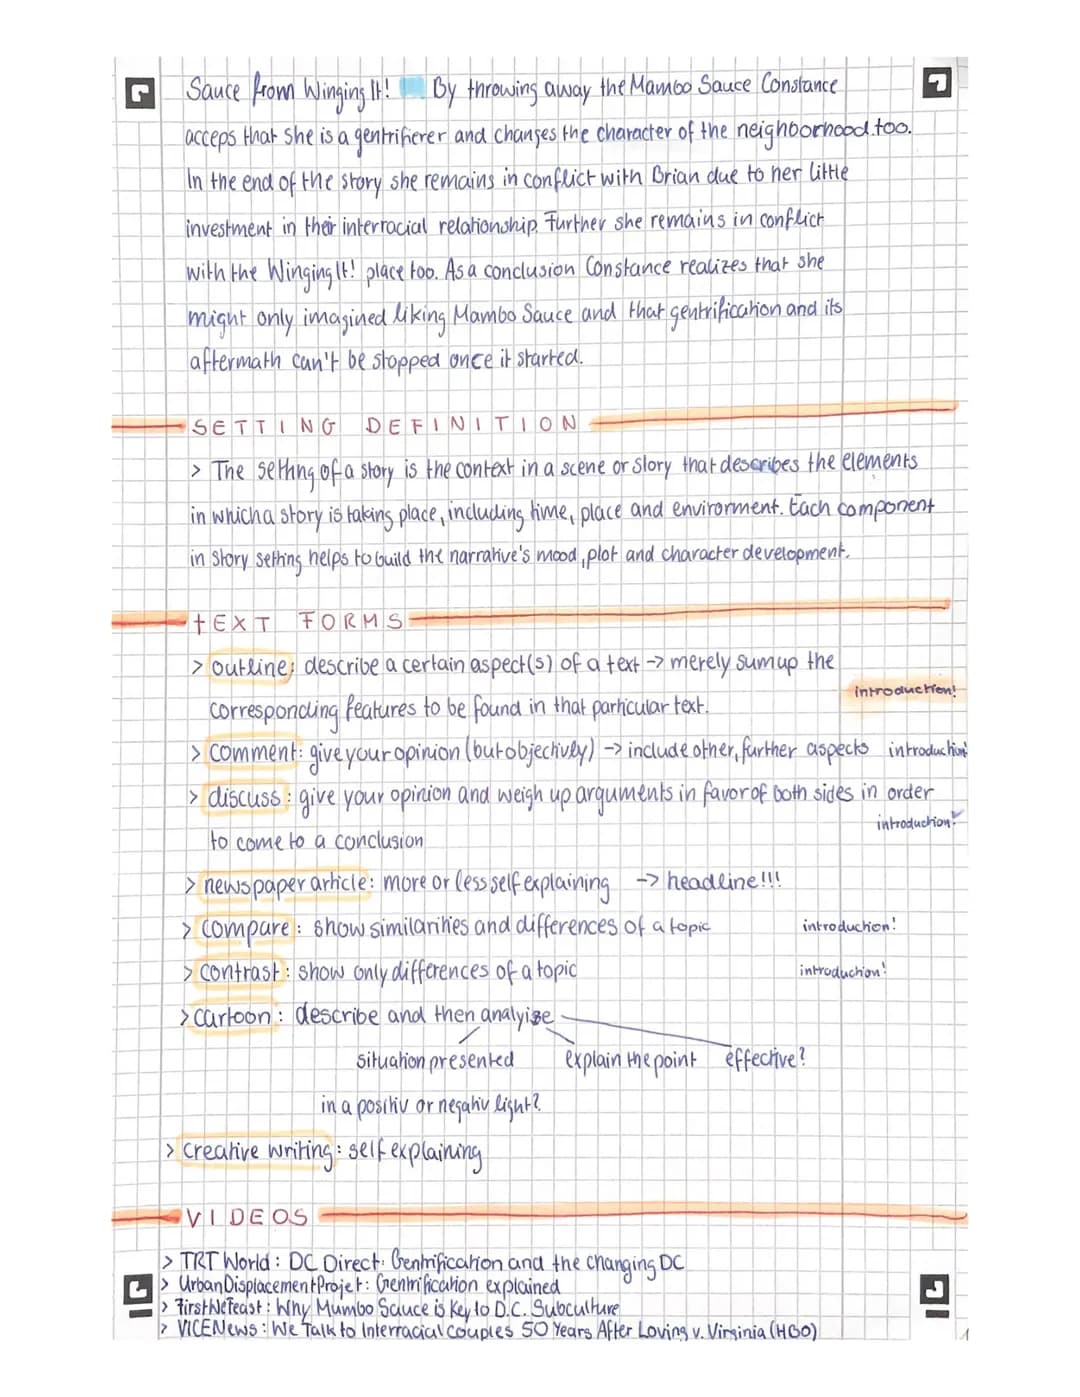 Sauce from Winging It! By throwing away the Mambo Sauce Constance
acceps that she is a gentrifierer and changes the character of the neighborhood too.
In the end of the story she remains in conflict with Brian due to her little
investment in their interracial relationship. Further she remains in conflict
with the Winging It! place too. As a conclusion Constance realizes that she
might only imagined liking Mambo Sauce and that gentrification and its
aftermath can't be stopped once it started.
SETTING DEFINITION
> The setting of a story is the context in a scene or story that describes the elements
in which a story is taking place, including time, place and environment. Each component
in story setting helps to build the narrative's mood, plot and character development.
TEXT FORMS
> outline: describe a certain aspect(s) of a text -> merely sum up the
introduction!
corresponding features to be found in that particular text.
> comment: give your opinion (but objectively) -> include other, further aspects introduction!
> discuss: give your opinion and weigh up arguments in favor of both sides in order
introduction!
to come to a conclusion
> newspaper article: more or less self explaining -> headline!!!
> compare: show similarities and differences of a topic introduction!
> contrast: show only differences of a topic introduction!
> cartoon: describe and then analyise
situation presented explain the point effective?
in a positiv or negativ light?
> creative writing: self explaining
VIDEOS
> TRT World: DC Direct: Gentrification and the changing DC
> Urban Displacement Projet: Gentrification explained
> First We Feast: Why Mumbo Sauce is Key to D.C. Subculture
> VICE News: We Talk to Interracial Couples 50 Years After Loving v. Virginia (HBO)